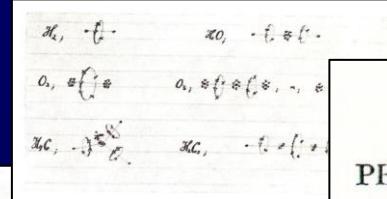 H₂, HO,
O₂, O₃,
H₂C, H₂C₂,
PR